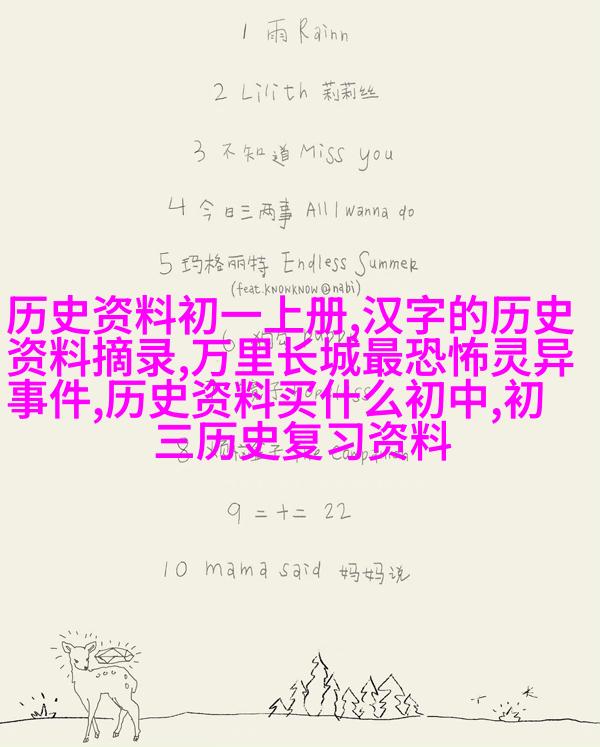 1 雨 Rainn
2 Lilith 莉莉丝
3 不知道 Miss you
4 今日三两事 All I wanna do
5 玛格丽特 Endless Summer
(feat.KNOWKNOW@nabi)
历史资料初一上册,汉字的历史
资料摘录,万里长城最恐怖灵异
事件,历史资料买什么初中,初
三历史复习资料
9 二十二 22
10 mama said 妈妈说